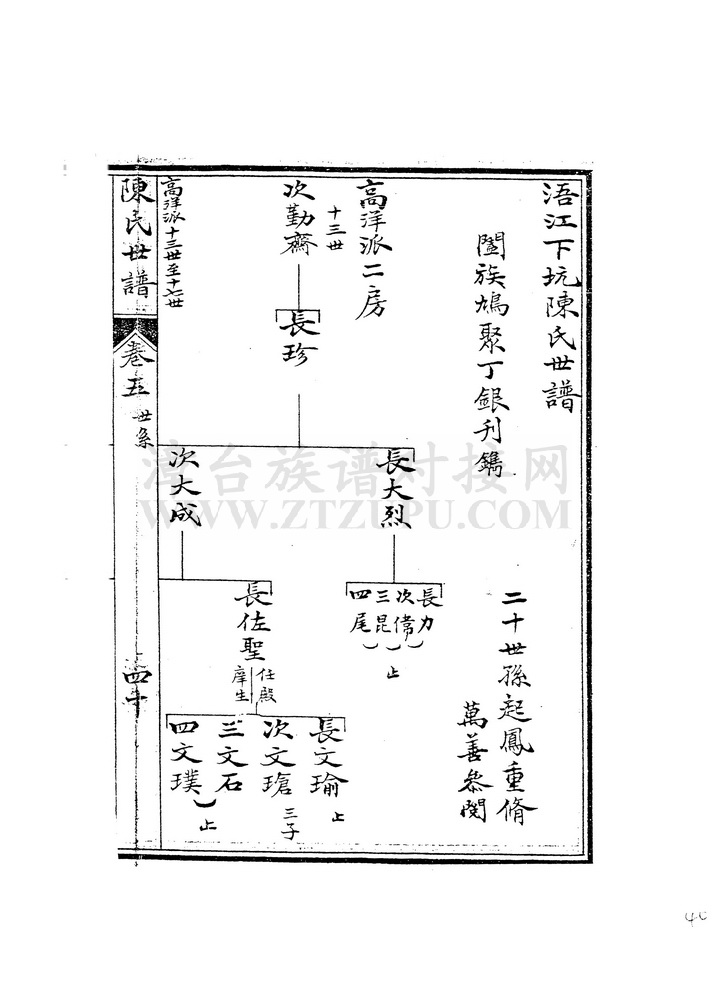 浯江下坑陳氏世譜
闔族鳩聚丁銀刋鐫
二十世孫起鳳重脩
萬善叅閱
高洋派二房
十三世
次勤齋
長珍
長大烈
次大成
長力
次儅
三昆
四尾
止
長佐聖
任殿
庠生
長文瑜
止
次文瑲
三子
三文石
四文璞
止
高洋派十三世至十七世
陳氏世譜
卷五
世系
四十
漳台族谱对接网
WWW.ZTZUPU.COM
40